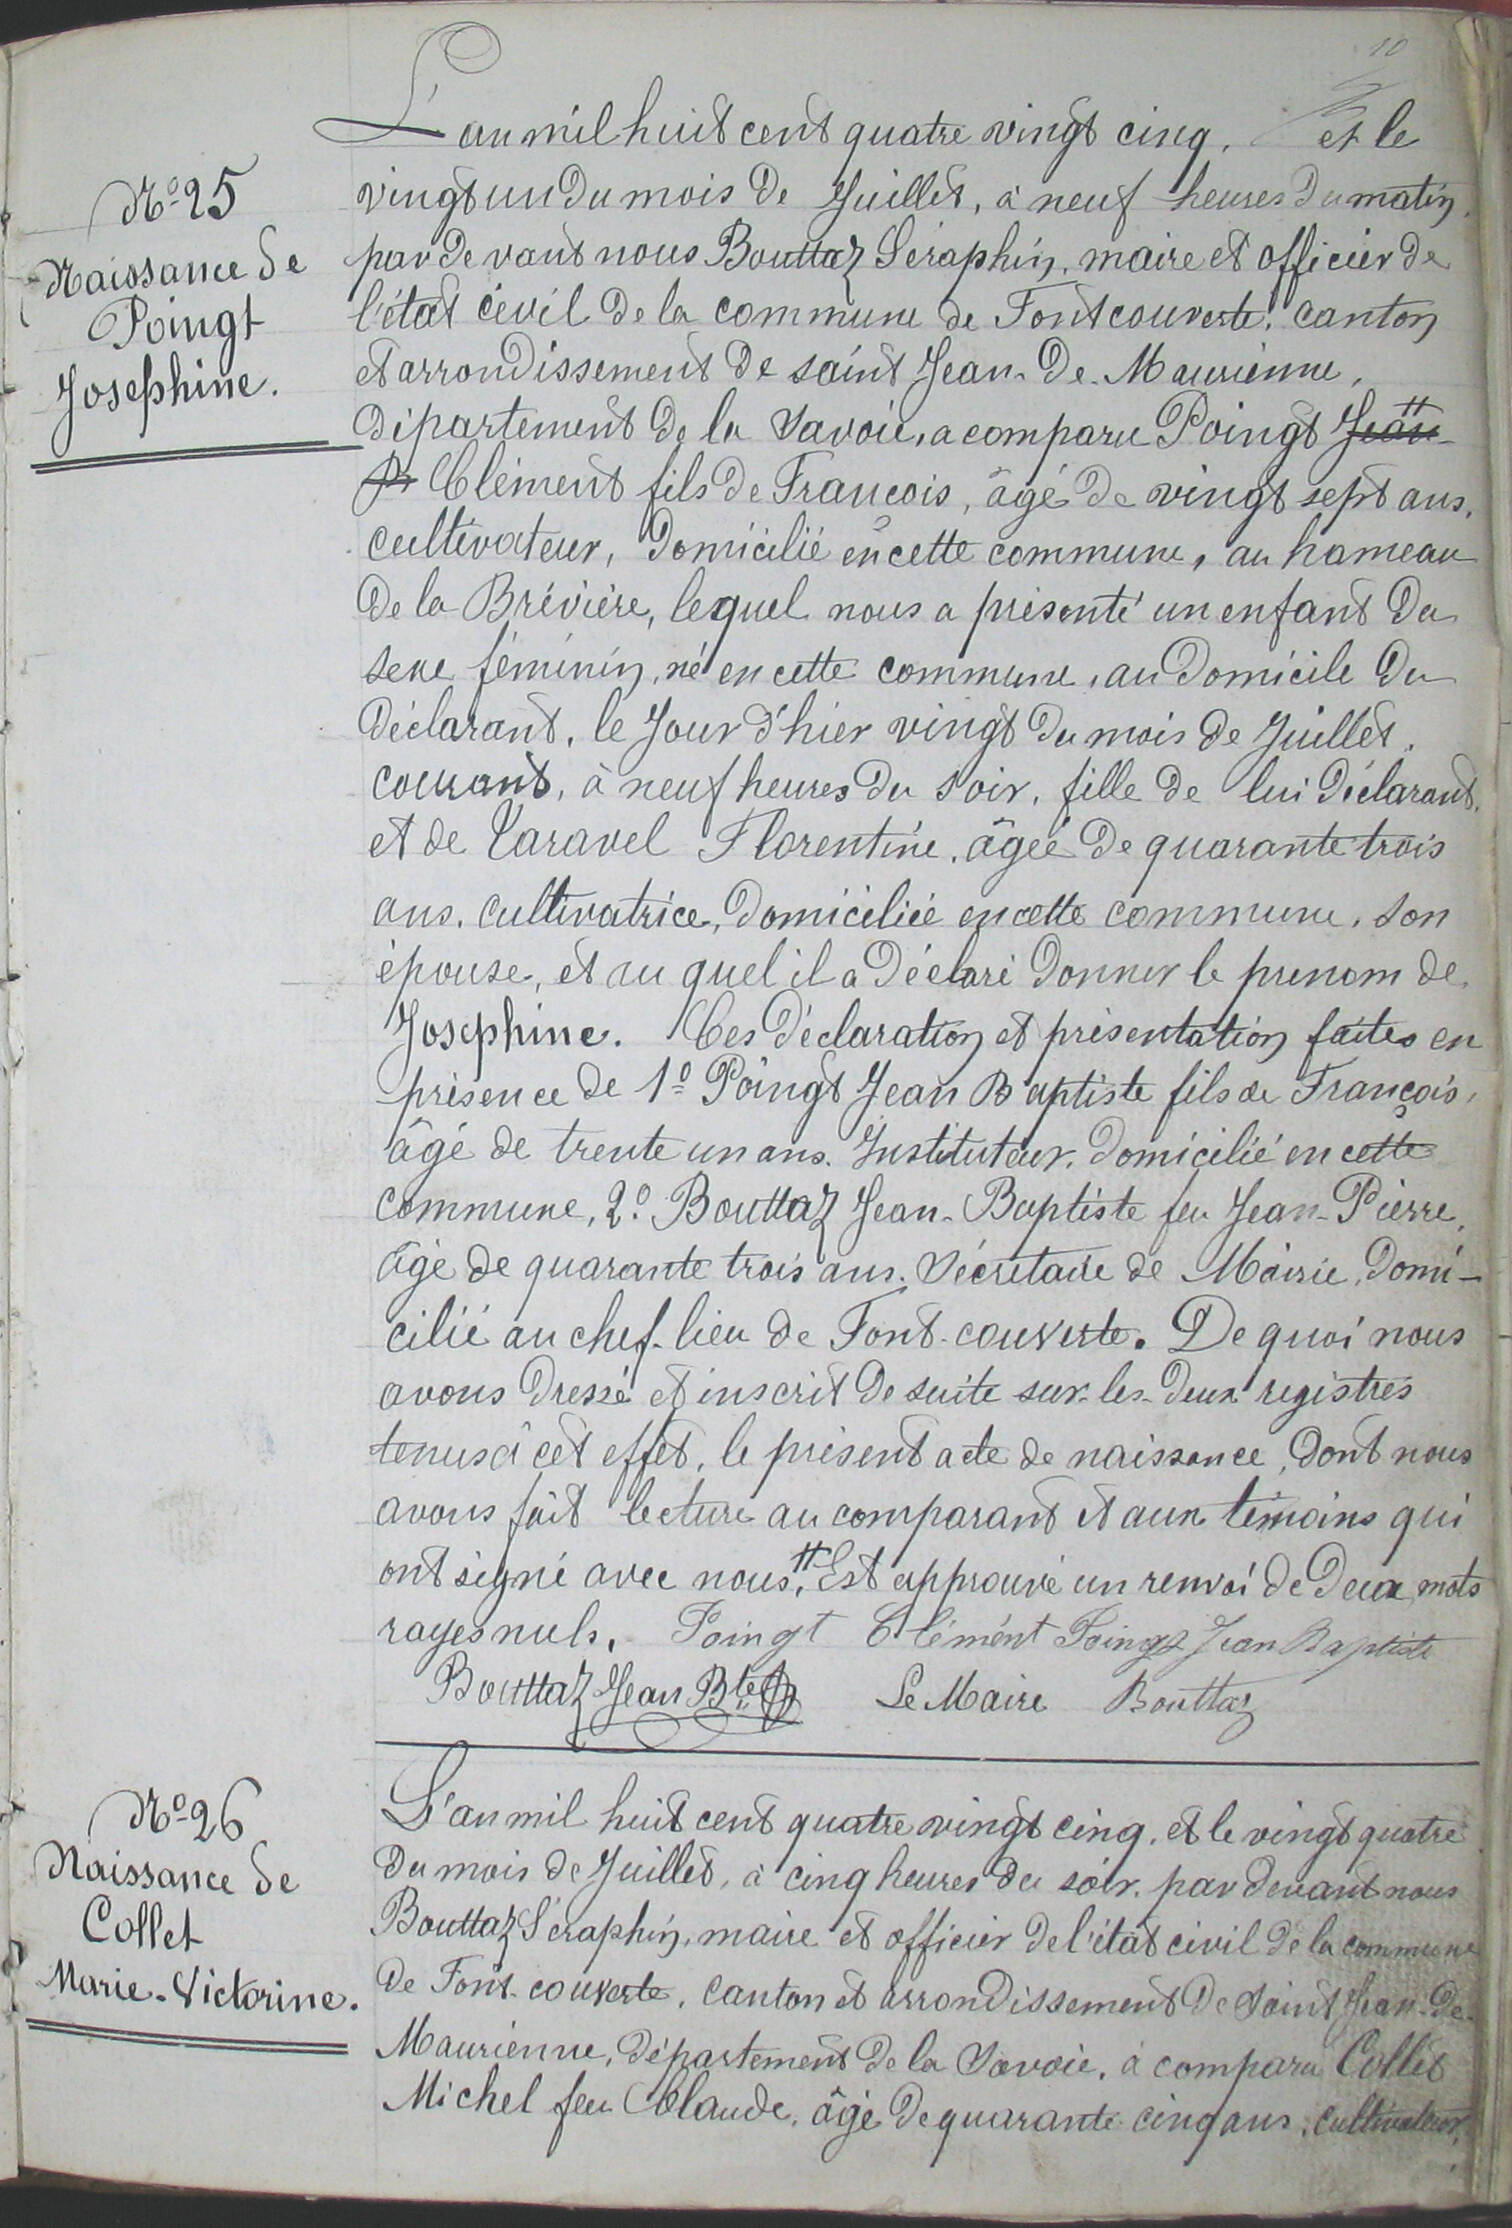 10
N° 25
Naissance de
Poingt
Josephine.
L'an mil huit cent quatre vingt cinq, et le
vingt un du mois de Juillet, à neuf heures du matin,
par devant nous Bouttaz Séraphin, maire et officier de
l'état civil de la commune de Fontcouverte, canton
et arrondissement de saint Jean-de-Maurienne,
département de la Savoie, a comparu Poingt Jean
Clément fils de Francois, âgé de vingt sept ans,
cultivateur, domicilié en cette commune, au hameau
de la Brévière, lequel nous a présenté un enfant du
sexe féminin, né en cette commune, au domicile du
déclarant, le jour d'hier vingt du mois de Juillet,
courant, à neuf heures du soir, fille de lui déclarant,
et de Taravel Florentine, âgée de quarante trois
ans, cultivatrice, domiciliée en cette commune, son
épouse, et au quel il a déclaré donner le prenom de
Josephine. Ces déclaration et présentation faites en
présence de 1° Poingt Jean Baptiste fils de François,
âgé de trente un ans, Instituteur, domicilié en cette
commune, 2° Bouttaz Jean-Baptiste feu Jean-Pierre,
âgé de quarante trois ans, Sécrétaire de Mairie, domi-
cilié au chef-lieu de Font-couverte. De quoi nous
avons dressé et inscrit de suite sur-les-deux registres
tenus à cet effet, le présent acte de naissance, dont nous
avons fait lecture au comparant et aux témoins qui
ont signé avec nous. Est approuvé un renvoi de deux mots
rayes nuls, Poingt Clémént Poingt Jean Baptiste
Bouttaz Jean Bte Le Maire Bouttaz
N° 26
Naissance de
Collet
Marie-Victorine.
L'an mil huit cent quatre vingt cinq, et le vingt quatre
du mois de Juillet, à cinq heures du soir, par devant nous
Bouttaz Séraphin, maire et officier de l'état civil de la commune
de Font-couverte, canton et arrondissement de Saint Jean-de-
Maurienne, département de la Savoie, à comparu Collet
Michel feu Claude, âgé de quarante cinq ans, cultivateur,